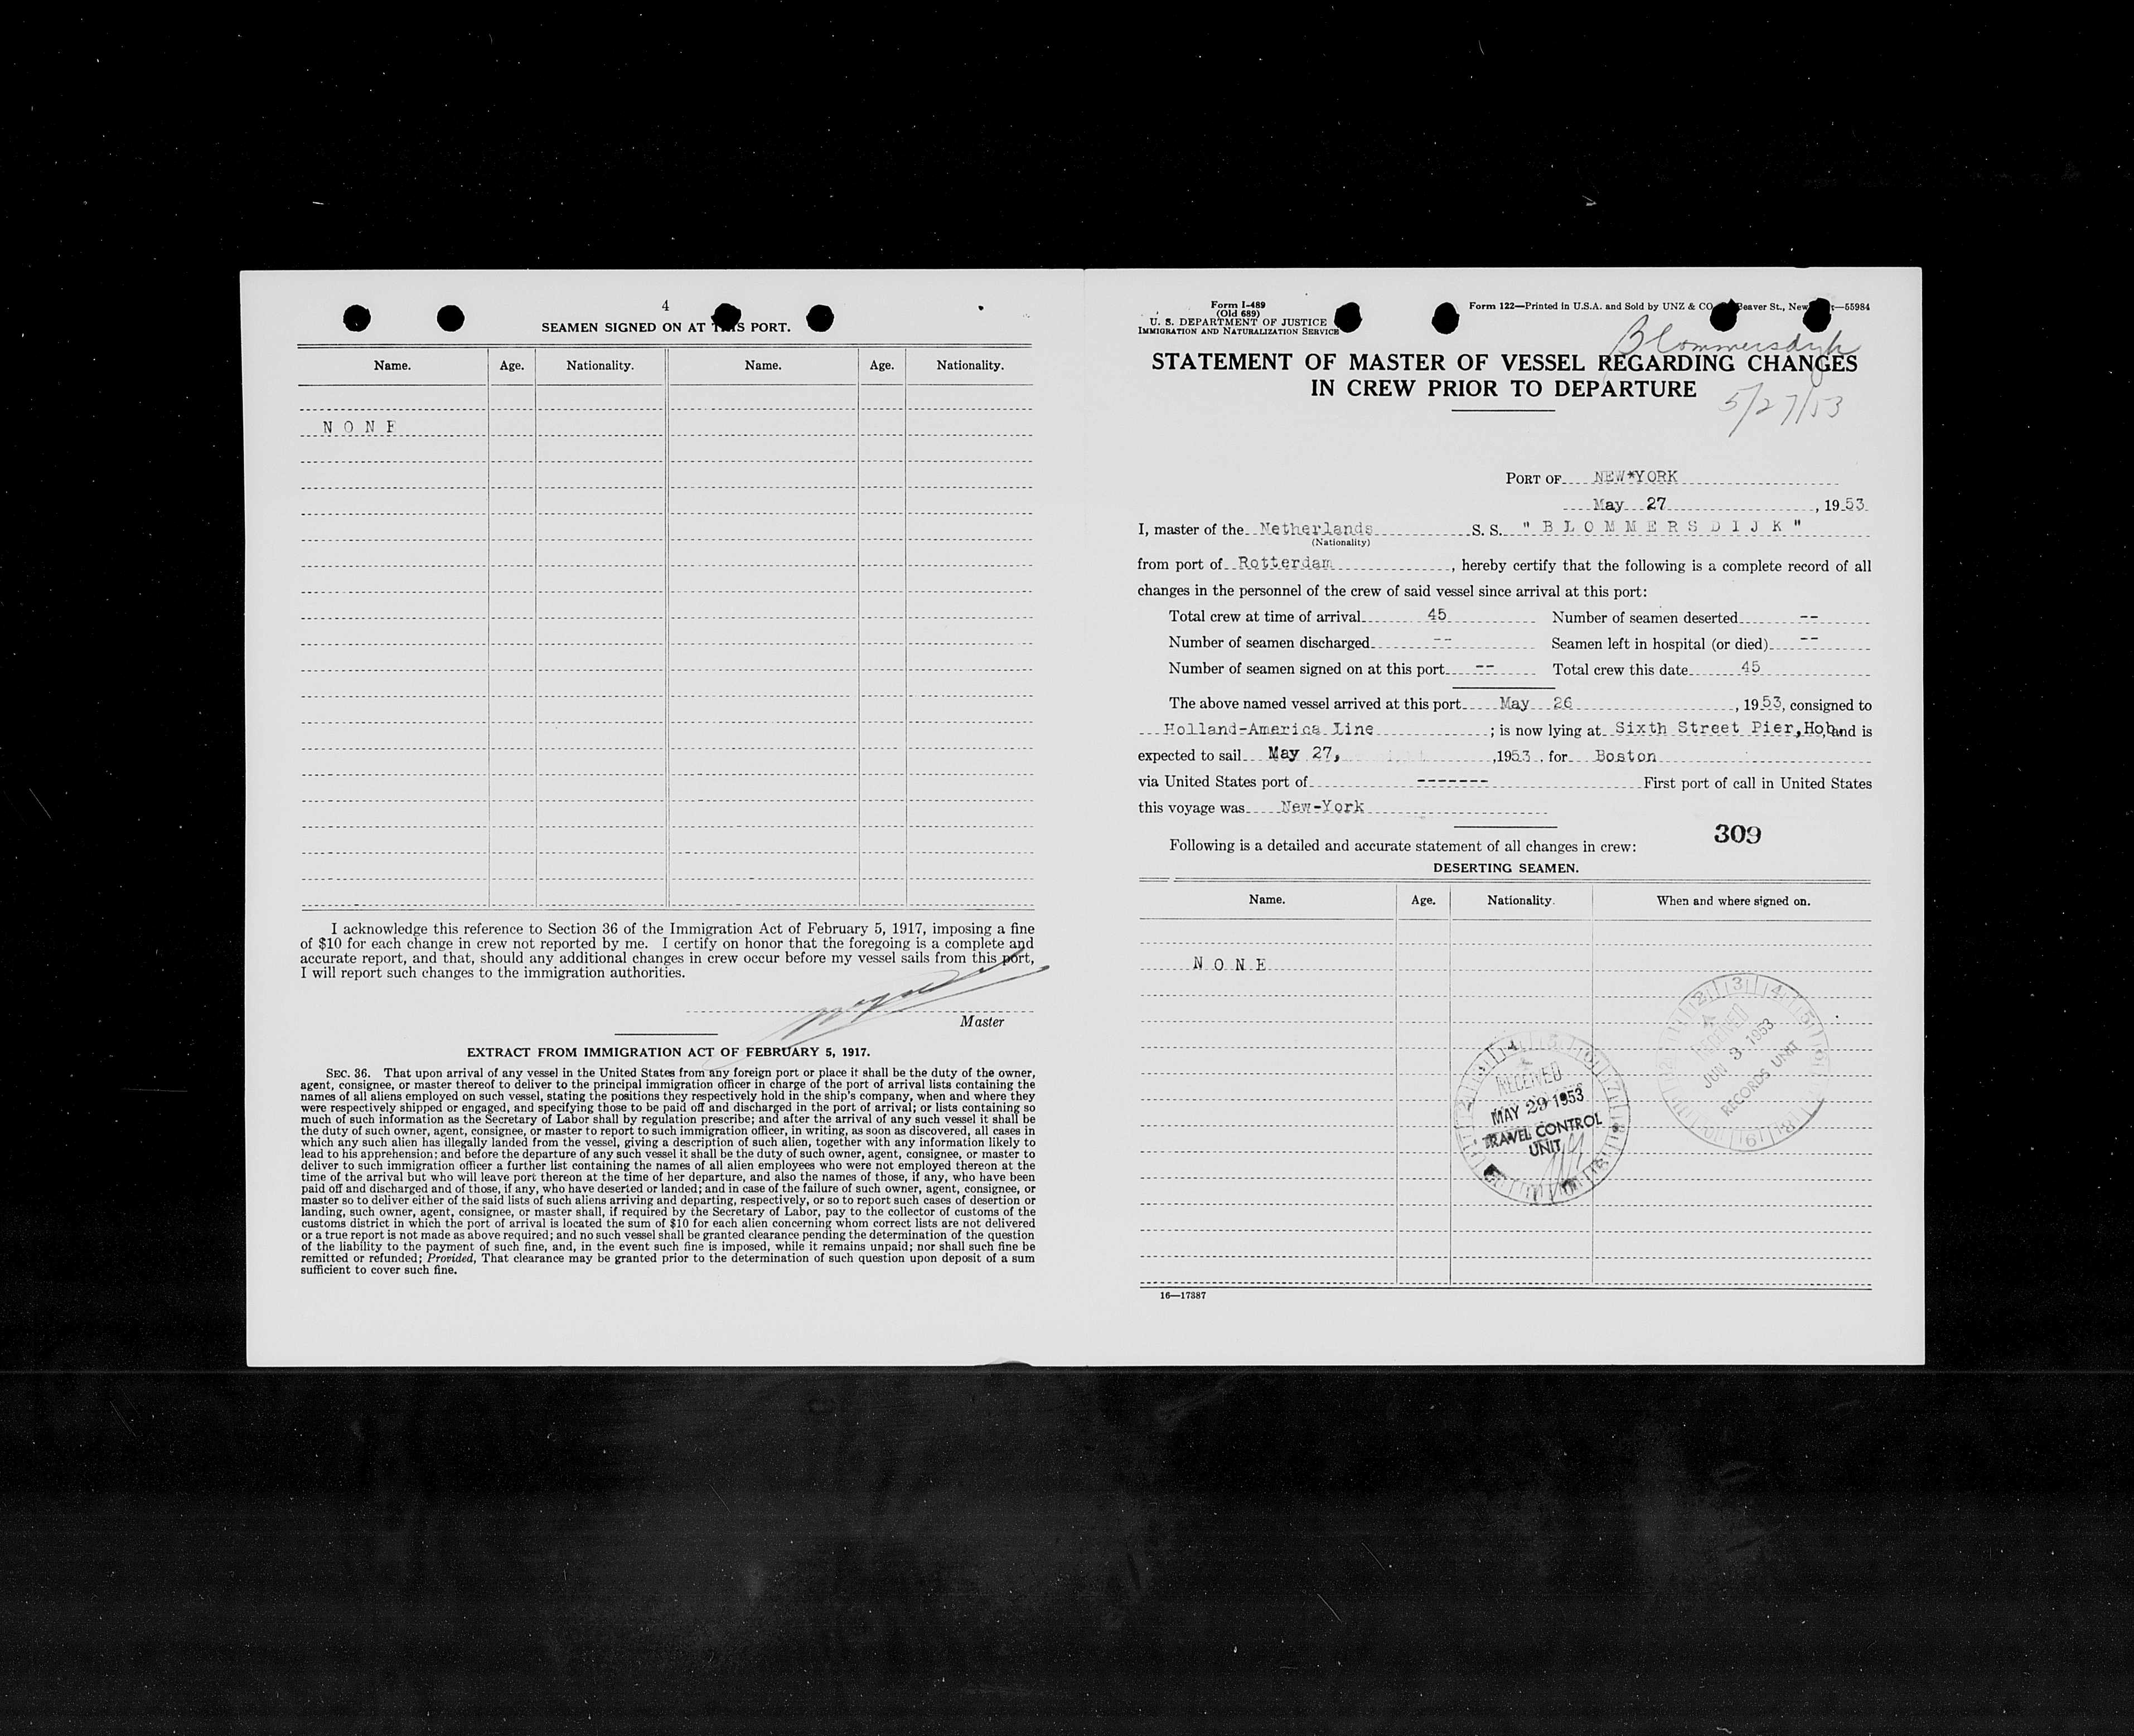 4
SEAMEN SIGNED ON AT THIS PORT.
Name. Age. Nationality. Name. Age. Nationality.
N O N E
I acknowledge this reference to Section 36 of the Immigration Act of February 5, 1917, imposing a fine
of $10 for each change in crew not reported by me. I certify on honor that the foregoing is a complete and
accurate report, and that, should any additional changes in crew occur before my vessel sails from this port,
I will report such changes to the immigration authorities.
Master
EXTRACT FROM IMMIGRATION ACT OF FEBRUARY 5, 1917.
SEC. 36. That upon arrival of any vessel in the United States from any foreign port or place it shall be the duty of the owner,
agent, consignee, or master thereof to deliver to the principal immigration officer in charge of the port of arrival lists containing the
names of all aliens employed on such vessel, stating the positions they respectively hold in the ship's company, when and where they
were respectively shipped or engaged, and specifying those to be paid off and discharged in the port of arrival; or lists containing so
much of such information as the Secretary of Labor shall by regulation prescribe; and after the arrival of any such vessel it shall be
the duty of such owner, agent, consignee, or master to report to such immigration officer, in writing, as soon as discovered, all cases in
which any such alien has illegally landed from the vessel, giving a description of such alien, together with any information likely to
lead to his apprehension; and before the departure of any such vessel it shall be the duty of such owner, agent, consignee, or master to
deliver to such immigration officer a further list containing the names of all alien employees who were not employed thereon at the
time of the arrival but who will leave port thereon at the time of her departure, and also the names of those, if any, who have been
paid off and discharged and of those, if any, who have deserted or landed; and in case of the failure of such owner, agent, consignee, or
master so to deliver either of the said lists of such aliens arriving and departing, respectively, or so to report such cases of desertion or
landing, such owner, agent, consignee, or master shall, if required by the Secretary of Labor, pay to the collector of customs of the
customs district in which the port of arrival is located the sum of $10 for each alien concerning whom correct lists are not delivered
or a true report is not made as above required; and no such vessel shall be granted clearance pending the determination of the question
of the liability to the payment of such fine, and, in the event such fine is imposed, while it remains unpaid; nor shall such fine be
remitted or refunded; Provided, That clearance may be granted prior to the determination of such question upon deposit of a sum
sufficient to cover such fine.
Form I-489
(Old 689)
U. S. DEPARTMENT OF JUSTICE
IMMIGRATION AND NATURALIZATION SERVICE
Form 122—Printed in U.S.A. and Sold by UNZ & CO. Beaver St., New —55984
Blommersdyk
STATEMENT OF MASTER OF VESSEL REGARDING CHANGES
IN CREW PRIOR TO DEPARTURE
5/27/53
PORT OF NEW*YORK
May 27, 1953
I, master of the Netherlands S. S. " B L O M M E R S D I J K "
(Nationality)
from port of Rotterdam, hereby certify that the following is a complete record of all
changes in the personnel of the crew of said vessel since arrival at this port:
Total crew at time of arrival 45 Number of seamen deserted --
Number of seamen discharged -- Seamen left in hospital (or died) --
Number of seamen signed on at this port -- Total crew this date 45
The above named vessel arrived at this port May 26, 1953, consigned to
Holland-America Line; is now lying at Sixth Street Pier, Hob, and is
expected to sail May 27, ,1953, for Boston
via United States port of ------- First port of call in United States
this voyage was New-York
309
Following is a detailed and accurate statement of all changes in crew:
DESERTING SEAMEN.
Name. Age. Nationality. When and where signed on.
N O N E
RECEIVED
MAY 29 1953
TRAVEL CONTROL
UNIT
RECEIVED
JUN 3 1953
RECORDS UNIT
16—17387